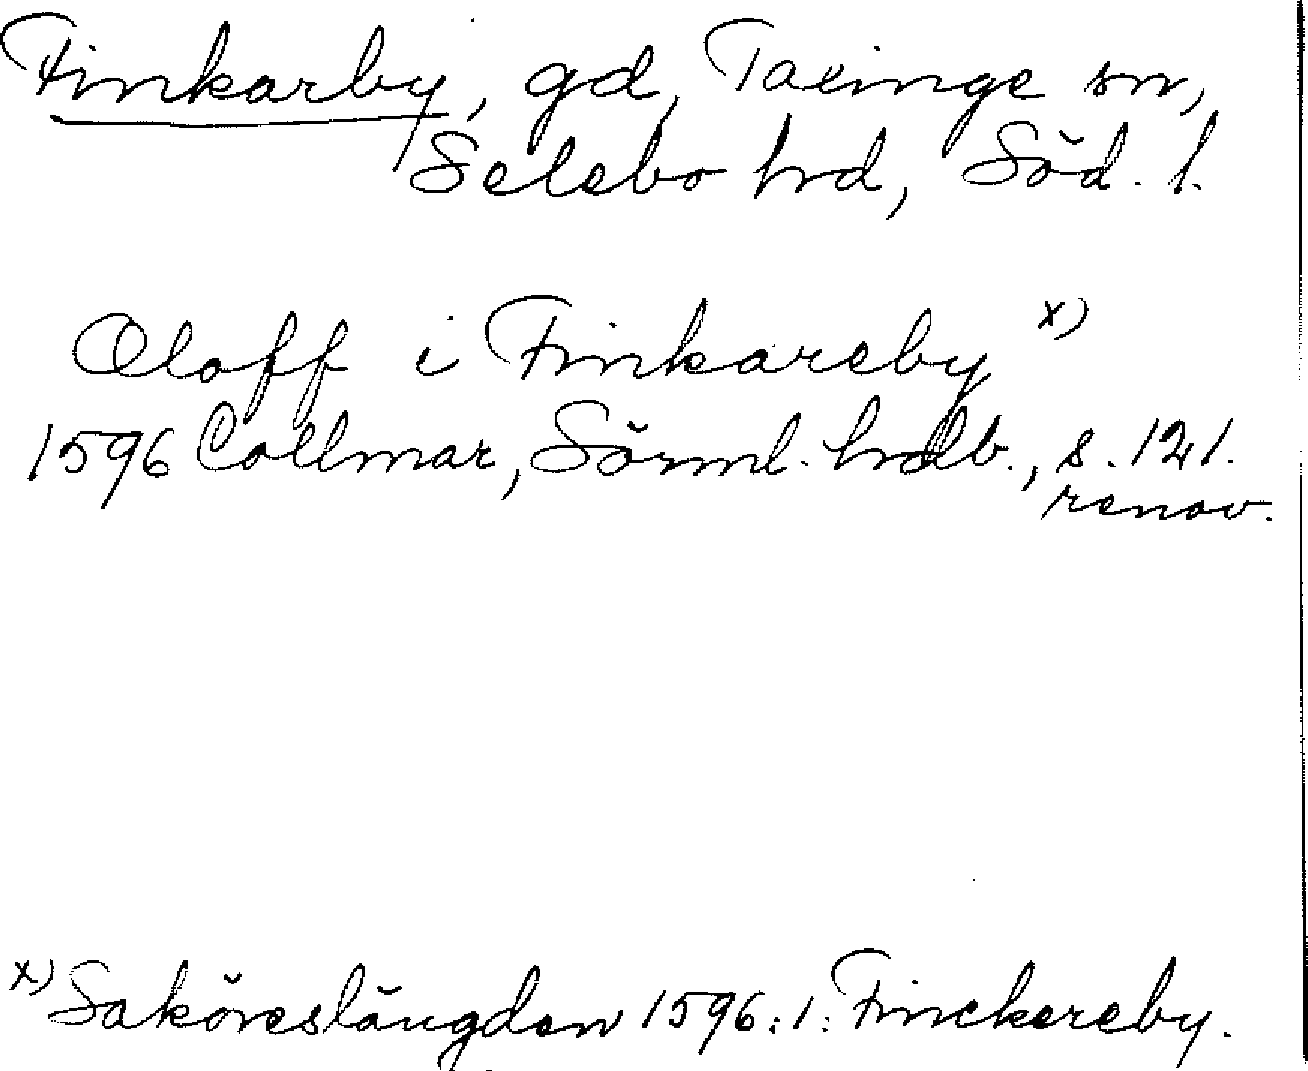 Finkarby, gd, Taxinge sn,
Selebo hrd, Söd. l.
Oloff i Finkareby x)
1596 Collmar, Sörml. hrdlb., s. 121.
renov.
x) Saköreslängden 1596:1: Finckereby.